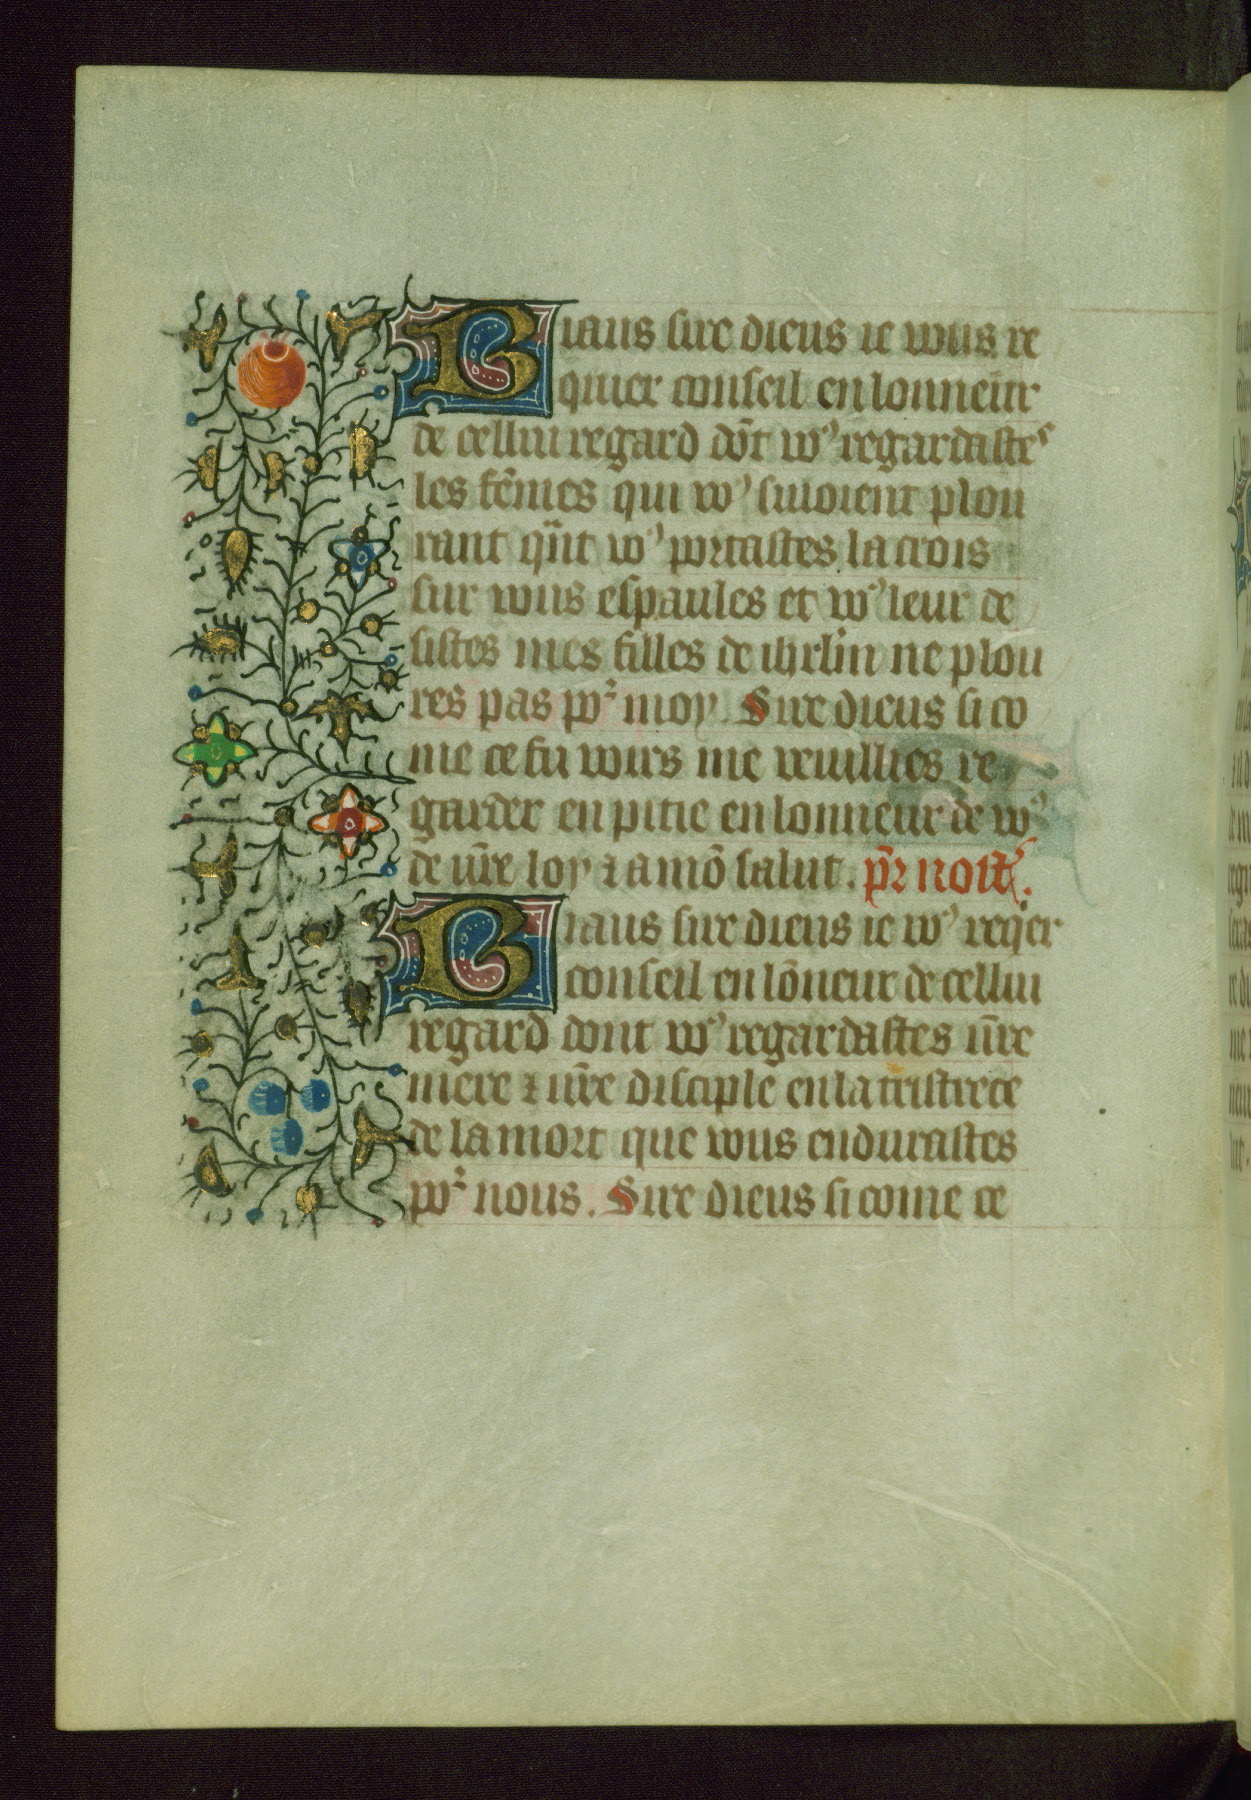 Biaus sire dieus ie vous re
quier conseil en lonneur
de cellui regard dōt voꝰ regardastes
les fēmes qui voꝰ siuoient plou
rant qn̄t voꝰ portastes la crois
sur vous espaules et voꝰ leur de
sistes mes filles de ihrl̄m ne plou
res pas poᷣ moy. Sire dieus si co
me ce fu voirs me veuillies re
garder en pitie en lonneur de voꝰ
de vr̄e loy ⁊ a mō salut. pr̄ nost̄.
Biaus sire dieus ie voꝰ req̇er
conseil en lōneur de cellui
regard dont voꝰ regardastes vr̄e
mere ⁊ vr̄e disciple en la tristrece
de la mort que vous endurastes
poᷣ nous. Sire dieus si come ce